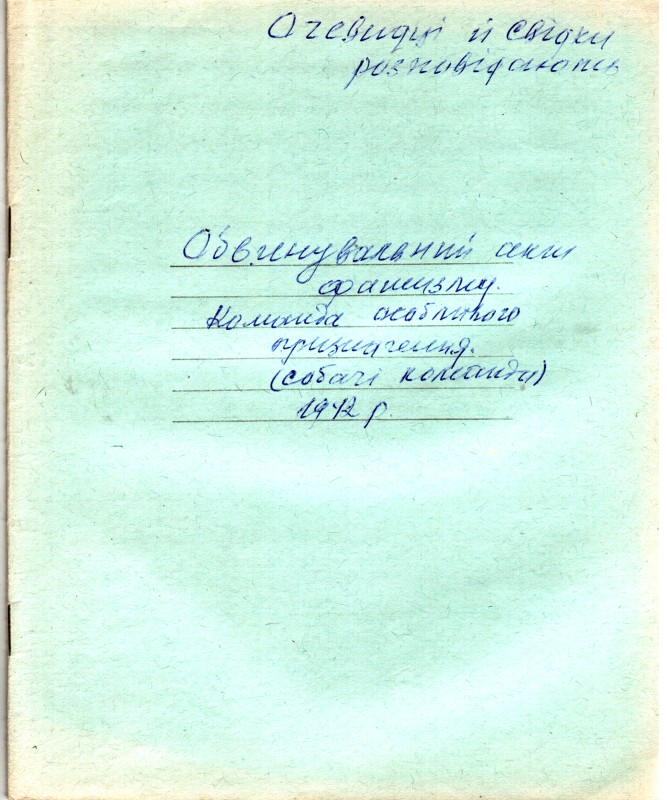 Очевидці й свідки
розповідають
Обвинувальний акт
фашизму.
Команда особливого
призначення.
(собачі команди)
1942 р.